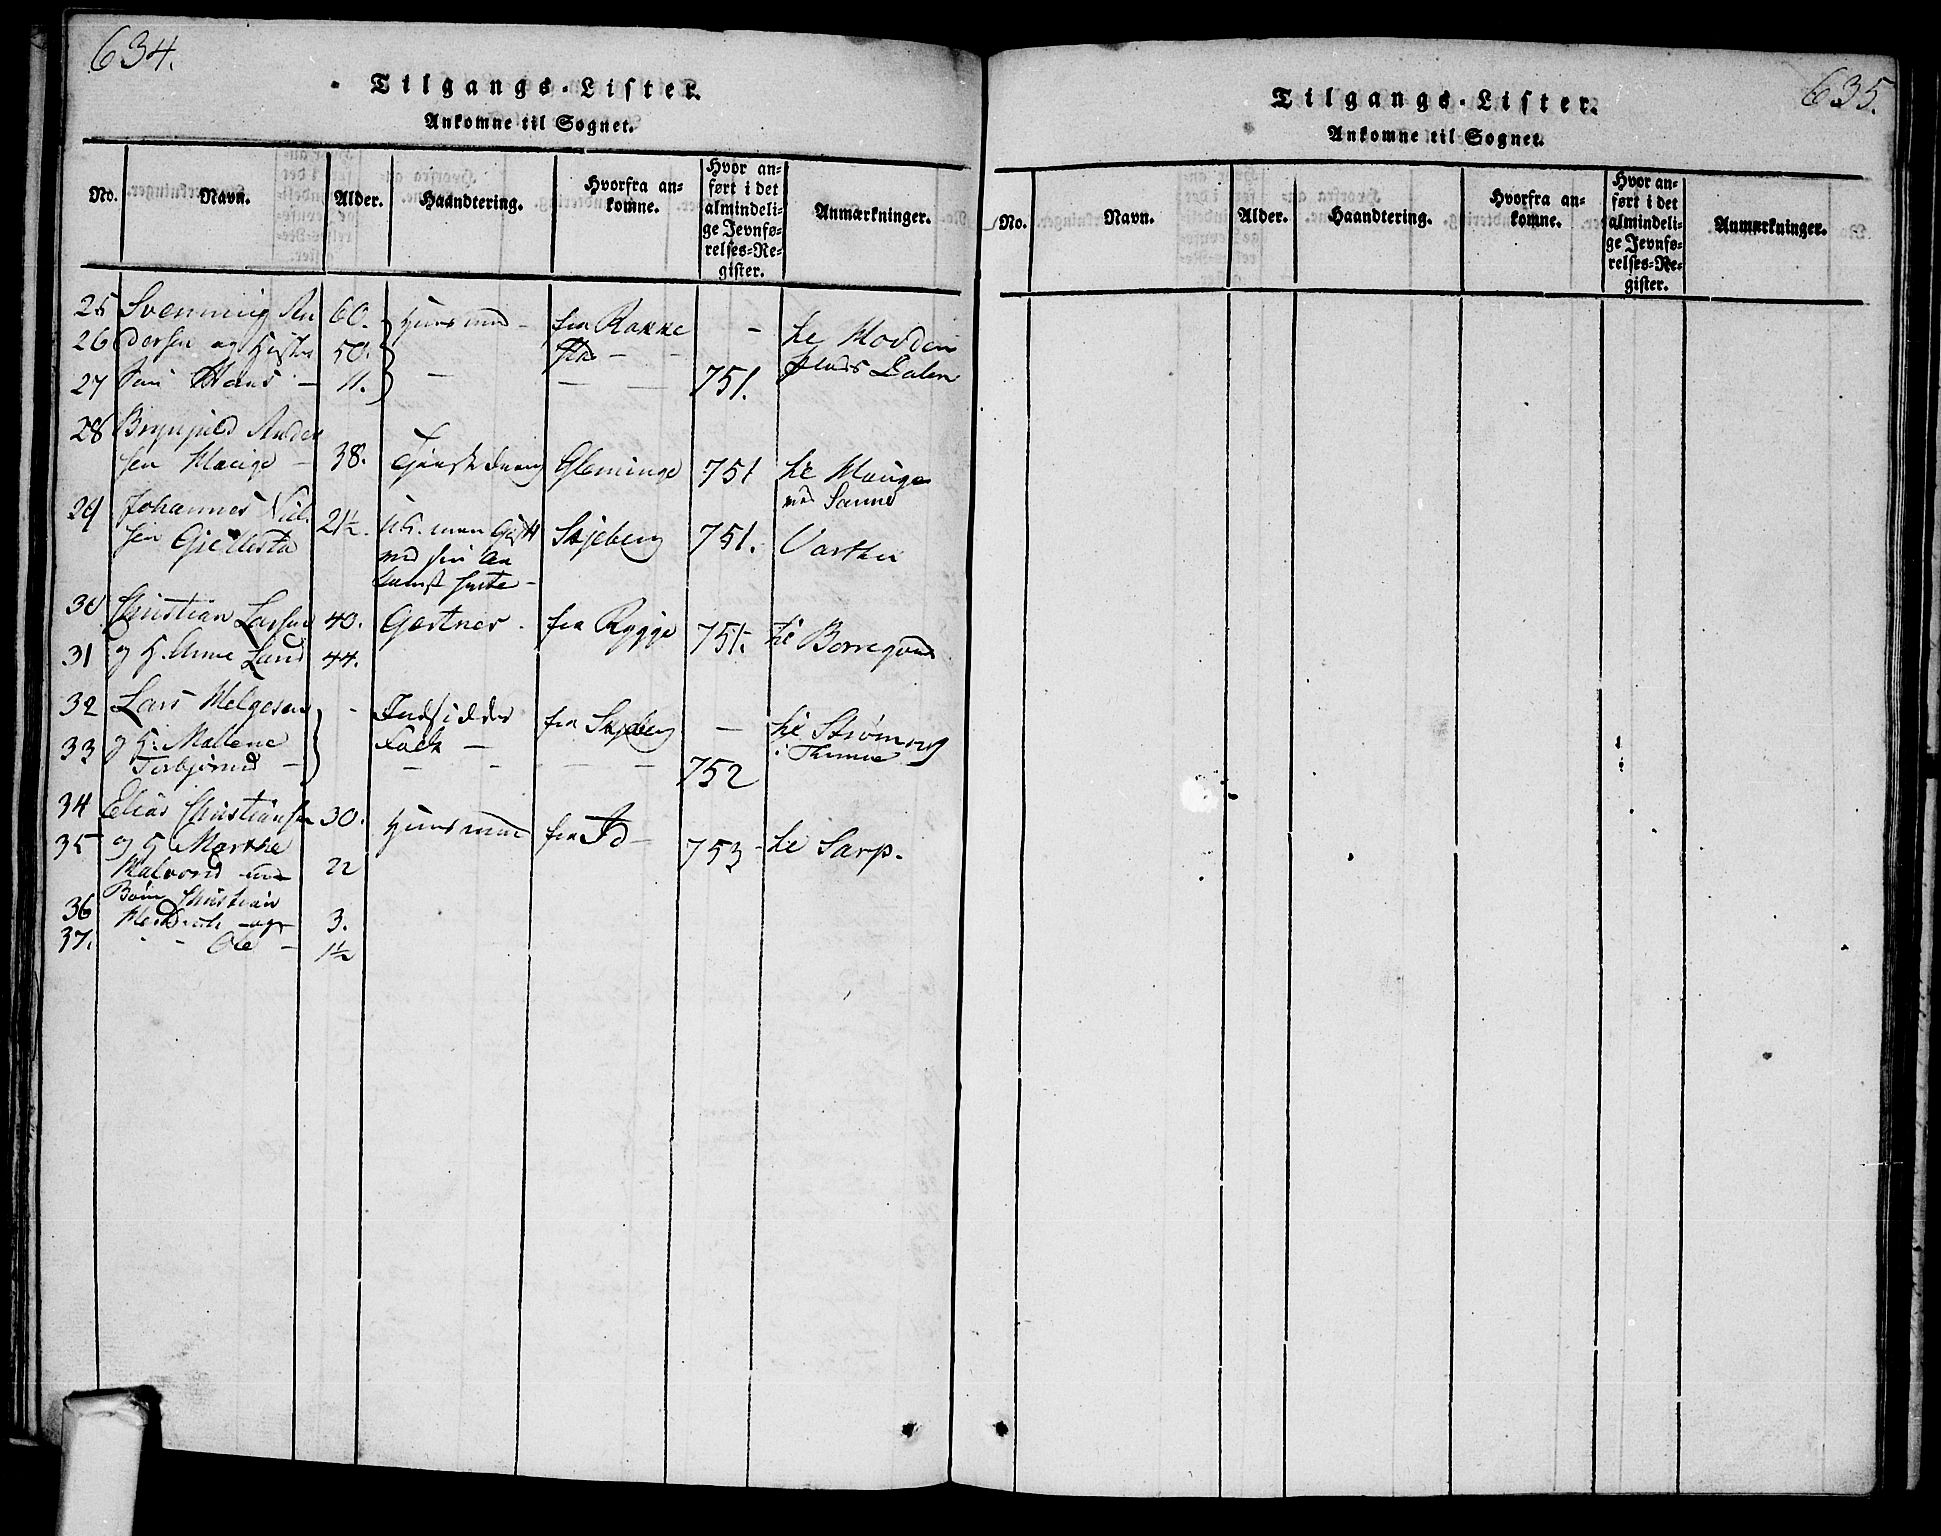 634.
Tilgangs-Lister.
Ankomne til Sognet.
No. Navn. Alder. Haandtering. Hvorfra ankomne. Hvor anført i det almindelige Jevnførelses-Register. Anmærkninger.
25 Svenning An 60. Huusmnd - fra Rakke - til Hovden
26 dersen og Hustr 50. stad - - plads Dalen
27 Søn Hans - 11. - - - 751.
28 Brynjuld Ander
sen Hauge - 38. Tjenestedreng Glemminge 751 til Hauge
29 Johannes Niel 21½. Skjeberg 751. ved Sanne
sen Gjellestad Varthei
30 Christian Larsen 40. Gartner. fra Rygge 751. til Borregaard
31 og H. Anne Lund 44.
32 Lars Helgesen - Indsidder fra Skjeberg - til Strømnes
33 og H. Mallene Folk - i Thune
Torbjørnsd - - - - 752
34 Elias Christiansen 30. Huusmnd fra Id - 753 til Sarp.
35 og H Marthe
Halvorsd 22
36 Børn Christian
- og 3.
37. - - Ole - 1½
635.
Tilgangs-Lister.
Ankomne til Sognet.
No. Navn. Alder. Haandtering. Hvorfra ankomne. Hvor anført i det almindelige Jevnførelses-Register. Anmærkninger.